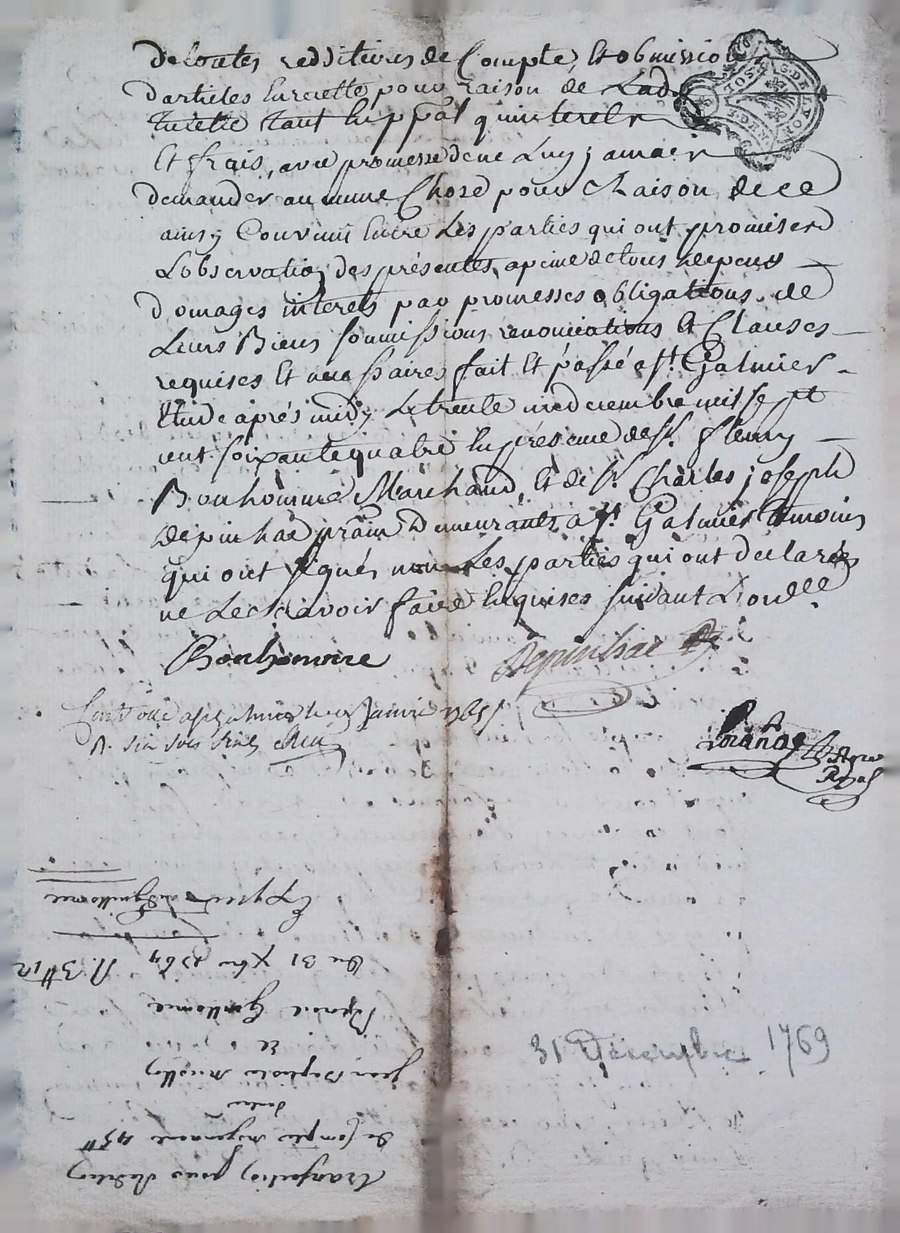 de toutes redditeurs de Compte, Et obmission
darticles En recette pour raison de Lad
turelle tant En ppal qu'interets
Et frais, avec promesse de ne Luy jamais
demander aucunne Chose pour Raison de ce
ainsy Convenu Entre Les parties qui ont promis
Lobservation des présentes, a peine de tous depens
domages interets par promesses obligations de
Leurs Biens soumissions renonciations Et Clauses
requises Et necessaires fait Et passé a St. Galmier
Etude aprés midy Le trente un decembre mil sept
cent soixante quatre En présence de Sr. fleury
Bonhomme Marchand, Et de Sr Charles joseph
Depinhac demeurants a St. Galmier temoins
qui ont signés non Les parties qui ont declarées
ne Le sçavoir faire Enquises suivant L'ordce.
Bonhomme
Depinhac
Janvier 1765
Royal
31 Décembre 1769
Du 31 Xbre 1764
Guillaume
Et
jean
De compte moyenant 45tt
transaction pour